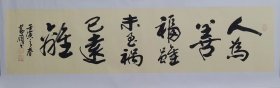 人為
善
福雖
未至禍
已遠
離